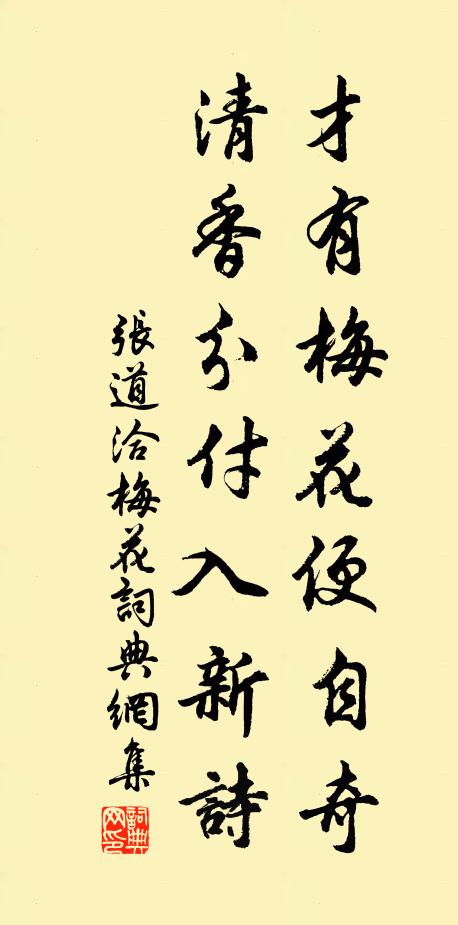 才有梅花便自奇
清香分付入新詩
張道洽梅花詞典網集
詞典网印